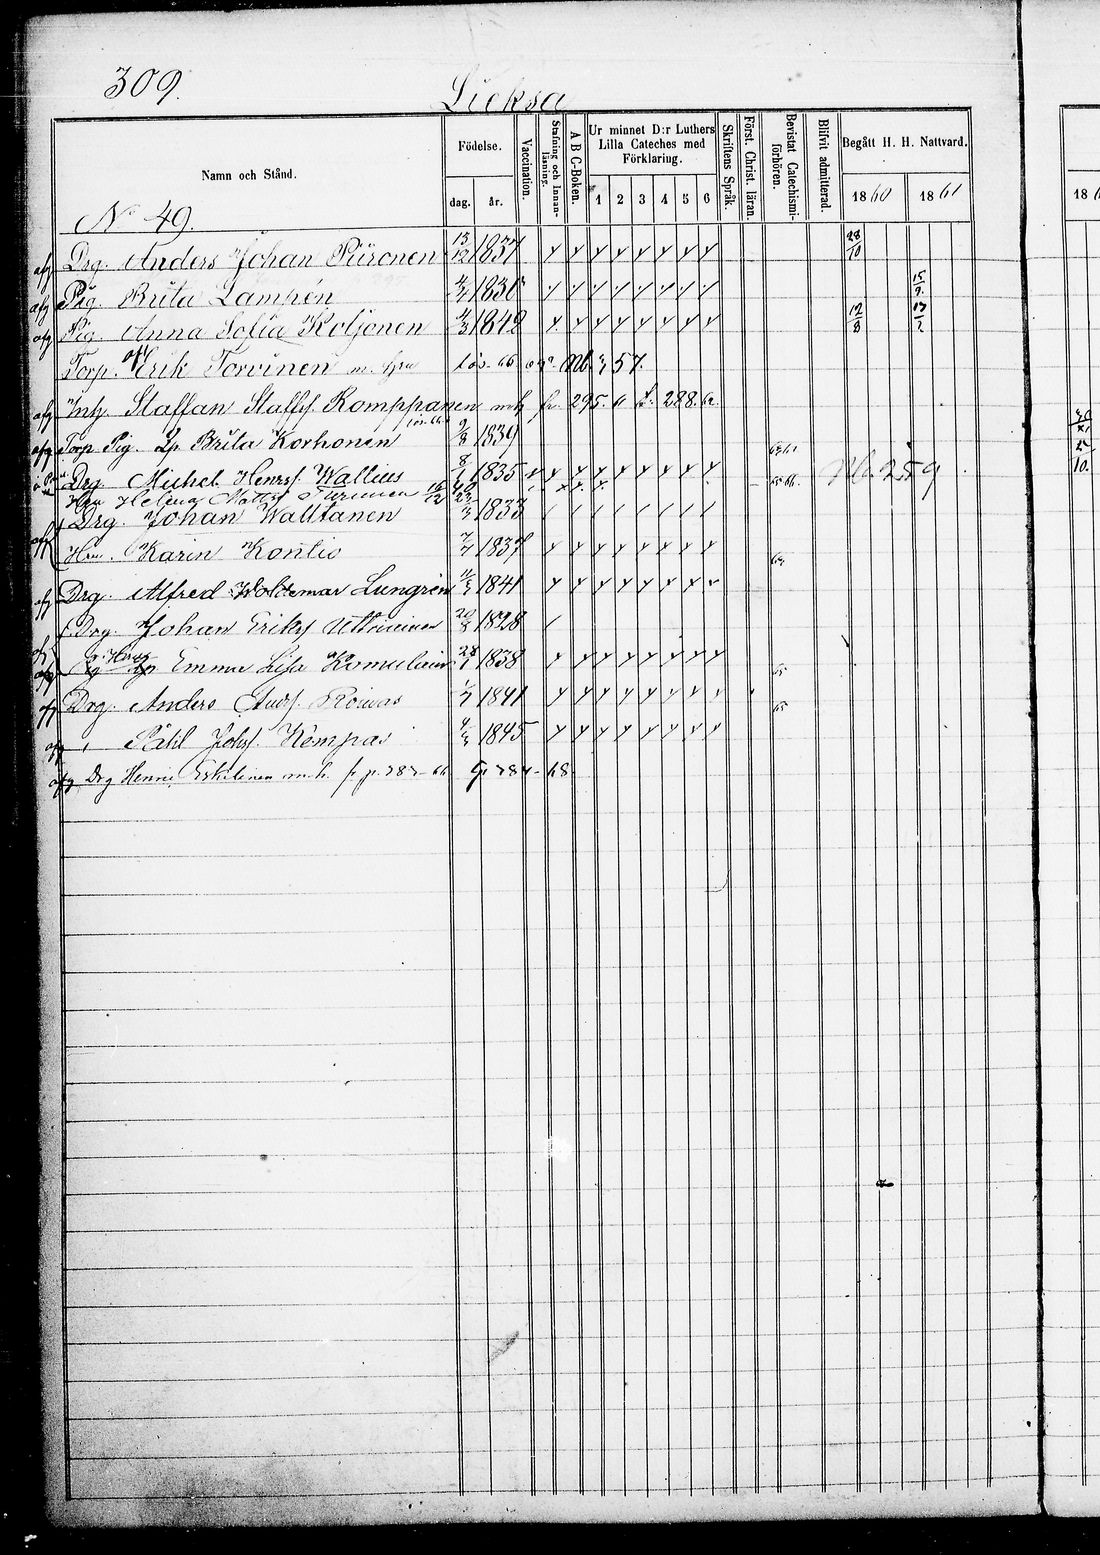 309.
Lieksa
Namn och Stånd.
Födelse.
dag. år.
Vaccination.
Stafning och Innan-läsning.
A B C-Boken.
Ur minnet D:r Luthers Lilla Cateches med Förklaring.
1 2 3 4 5 6
Skriftens Språk.
Först. Christ. läran.
Bevistat Catechismi-förhören.
Blifvit admitterad.
Begått H. H. Nattvard.
1860 1861
No 49.
Drg. Anders Johan Piironen 13/12 1837 28/10
afg Pig. Brita Lampén 1830 15/9
afg Pig. Anna Sofia Koljonen 4/3 1842 12/8 17/2
Torp. Erik Torvinen m. hru 57.
afg Inh. Staffan Staffs. Romppanen mh fr. 295. 288.
afg Torp Pig. Brita Korhonen 9/8 1839
Drg. Michel Henrs. Wallius 8/1 1835 259
Hru Helena Matts. Turunen 16/12
Drg. Johan Walltanen 1833
Hru. Karin Kontio 7/7 1837
afg Drg. Alfred Woldemar Lungrén 11/5 1841
Drg. Johan Eriks 20/8 1828
Emma Lisa Komulain 28/1 1838
afg Drg. Anders Anders. Roivas 1/7 1841
afg Påhl Johs. Kempas 4/3 1845
afg Drg Henric Eskelinen m.h. fr p. 787-66 787-68